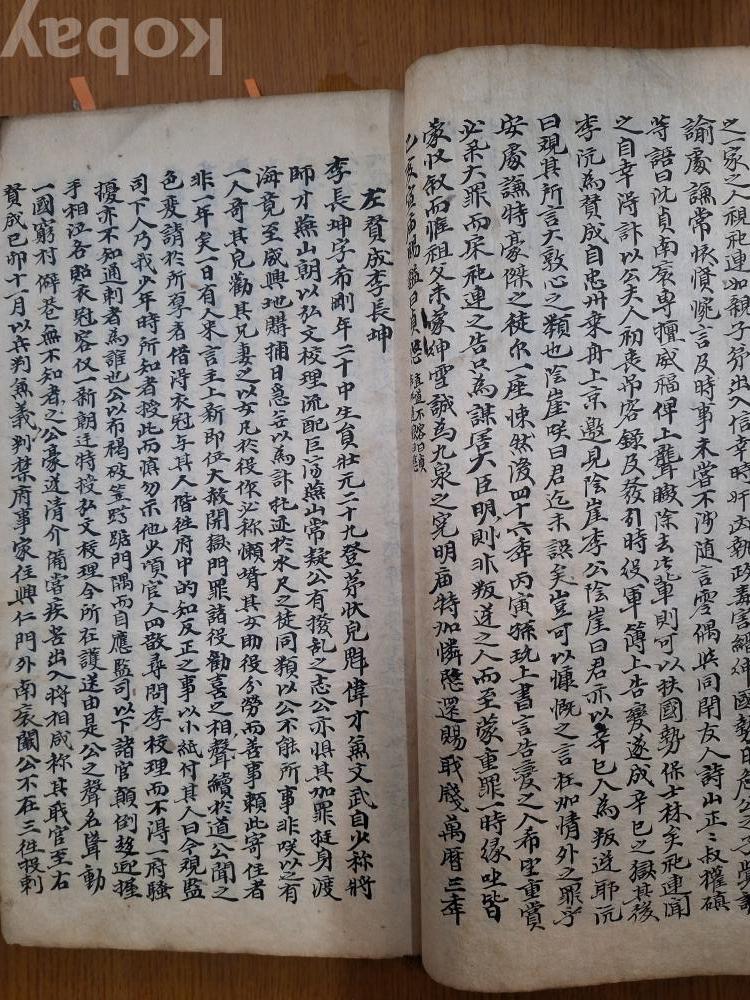 之一家之人祖祀連如親子弟出入信幸時
諭處謙常怏憤惋言及時事未嘗不涉隨言零偶與同閈友人詩山正〻叔權磌
等語曰沈貞南袞專擅威福俾上聾瞰除去此輩則可以扶國勢保士林矣祀連聞
之自幸得計以公夫人初喪吊客錄及發引時役軍簿上告變遂成辛巳之獄其後
李沅為贊成自忠州乗舟上京邀見陰崖李公陰崖曰君亦以辛巳人為叛逆耶沅
曰觀其所言大敦心之類也陰崖咲曰君迄未誤矣豈可以慷慨之言枉加情外之罪乎
安處謙特豪傑之徒尔一座悚然後四十六年丙寅孫玧上書言告變之人希望重賞
必釆大罪而宋祀連之告只為謀害大臣明則非叛逆之人而至蒙重罪一時緣坐皆
蒙收叙而惟祖父未蒙伸雪誠為九泉之寃明庙特加憐愍還賜職牒萬曆三年
左贊成李長坤
李長坤字希剛年二十中生員壯元二十九登第狀皃魁偉才兼文武自少称將
師才燕山朝以弘文校理流配巨濟燕山常疑公有撥乱之志公亦惧其加罪挺身渡
海竟至咸興地購捕日急公以為計托迹於水尺之徒同類以公不能所事非咲以之有
一人奇其皃勸其兄妻之以女凡於役作必称懶婿其女助役分勞而善事賴此寄住者
非一年矣一日有人来言主上新即位大赦開獄門罪諸役勸喜之相聲續於道公聞之
色变請於所享者借得衣冠与其人偕往府中的知反正之事以小紙付其人曰令現監
司下人乃我少年時所知者授此而愼勿示他少項官人四散尋問李校理而不得一府騷
擾亦不知通刺者為誰也公以布褐破笠踦踞門隅而自應監司以下諸官顛倒趍迎握
手相泣各照衣冠容仪一新朝廷特授弘文校理令所在護送由是公之聲名聳動
一國窮村僻巷無不知者之公豪邁清介備嘗疾苦出入將相咸称其職官至右
贊成己卯十一月以兵判兼義判禁府事家住興仁門外南袞關公不在三徃投刺
kobay